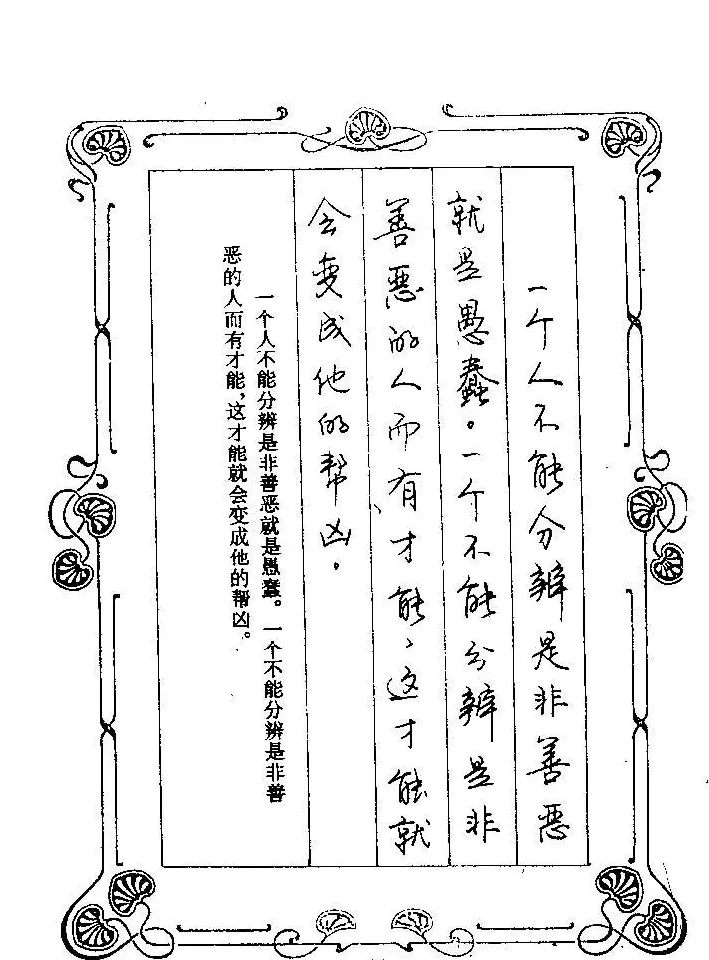 一个人不能分辨是非善恶
就是愚蠢。一个不能分辨是非
善恶的人而有才能、这才能就
会变成他的帮凶。
一个人不能分辨是非善恶就是愚蠢。一个不能分辨是非善
恶的人而有才能,这才能就会变成他的帮凶。